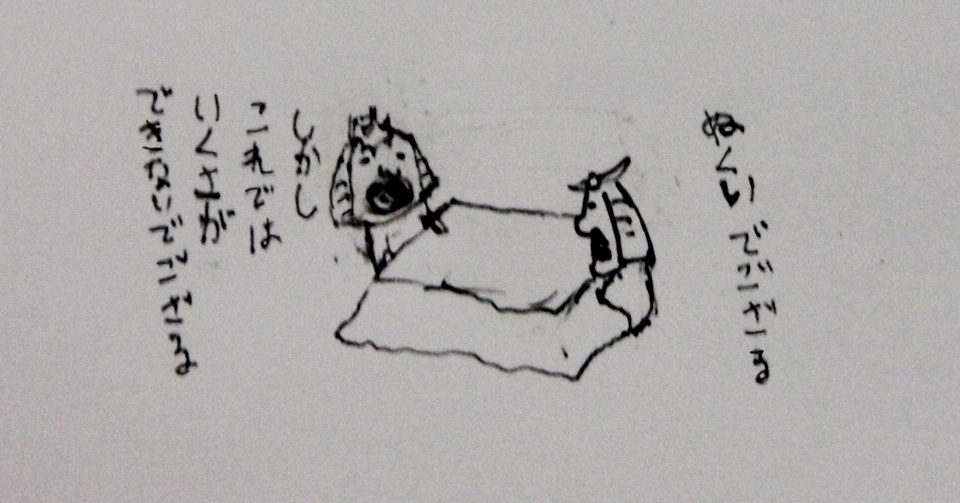 ぬくいでござる
しかし
これでは
いくさが
できないでござる